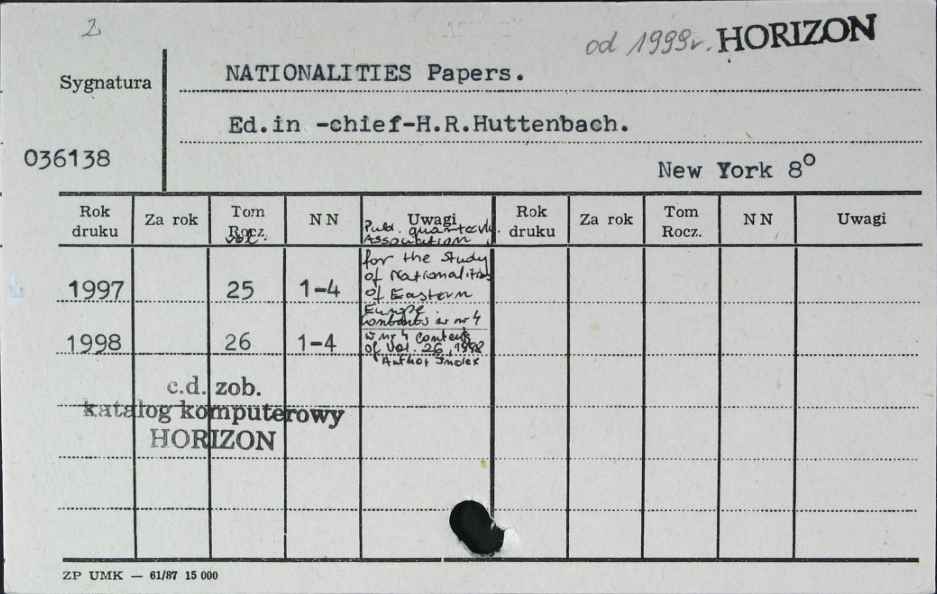 2
od 1999r. HORIZON
Sygnatura
NATIONALITIES Papers.
Ed.in -chief-H.R.Huttenbach.
036138
New York 8°
Rok druku Za rok Tom Rocz. NN Uwagi Rok druku Za rok Tom Rocz. NN Uwagi
vol.
Publ. quarterly
Association
for the Study
of Nationalities
of Eastern
Europe.
1997 25 1-4
Contents w nr 4
1998 26 1-4
w nr 4 contents
of Vol. 26, 1998
Author Index
c.d. zob.
katalog komputerowy
HORIZON
ZP UMK — 61/87 15 000